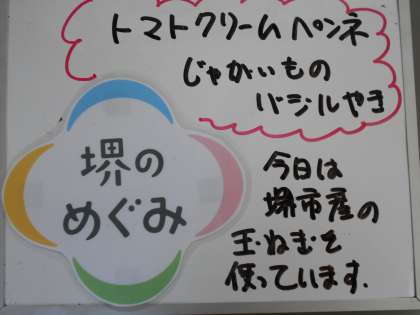 トマトクリームペンネ
じゃがいもの
バジルやき
堺の
めぐみ
今日は
堺市産の
玉ねぎを
使っています.